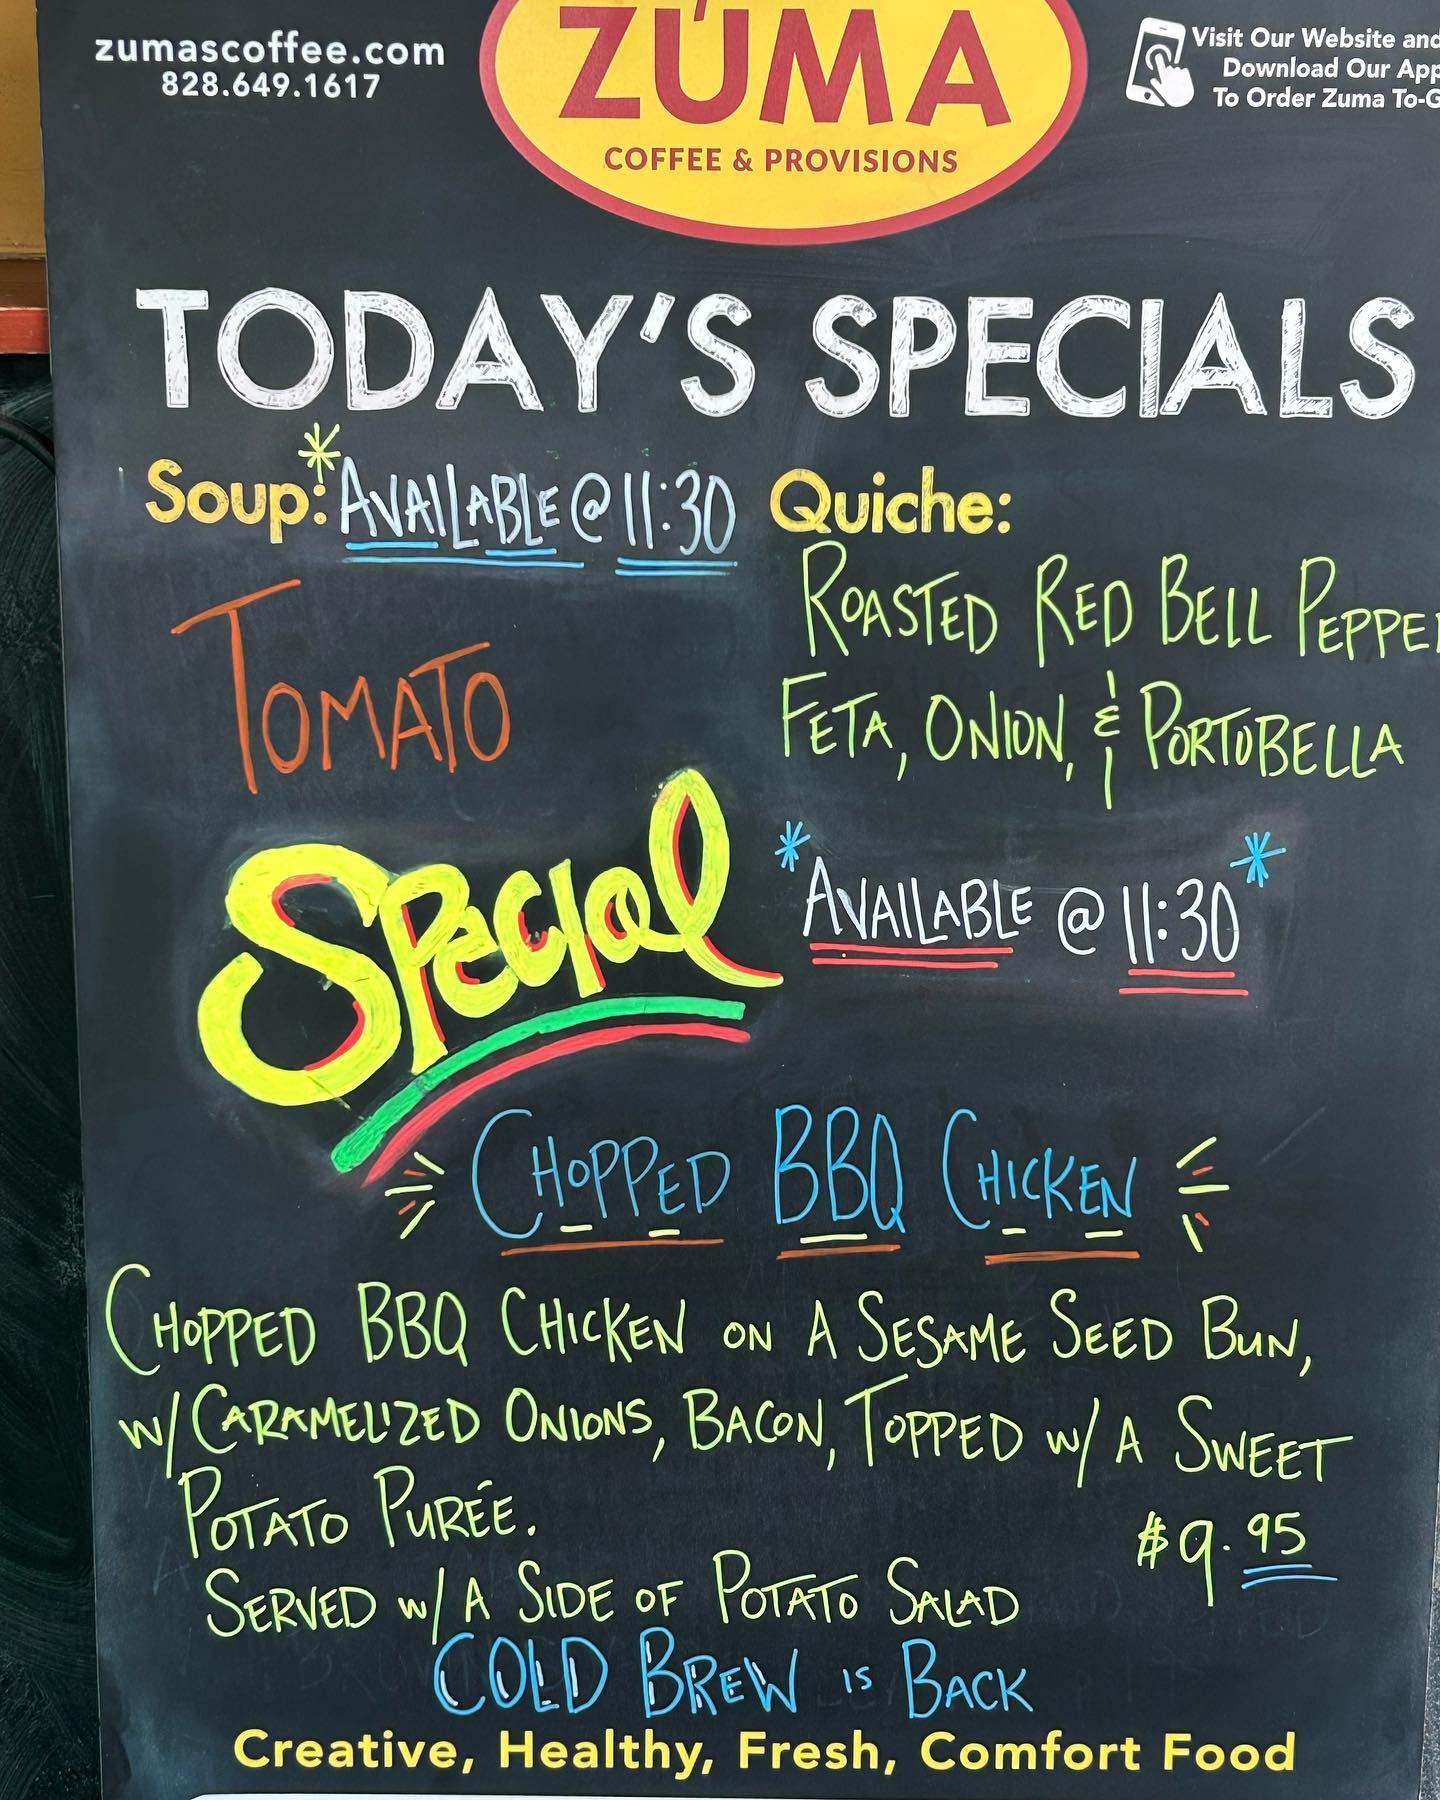 zumascoffee.com
828.649.1617
ZUMA
COFFEE & PROVISIONS
Visit Our Website and
Download Our App
To Order Zuma To-G
TODAY'S SPECIALS
Soup:* AVAILABLE @ 11:30
TOMATO
Quiche:
ROASTED RED BELL PEPPE
FETA, ONION, & PORTOBELLA
SPECIAL
*AVAILABLE @ 11:30*
CHOPPED BBQ CHICKEN
CHOPPED BBQ CHICKEN ON A SESAME SEED BUN,
W/ CARAMELIZED ONIONS, BACON, TOPPED W/ A SWEET
POTATO PURÉE.
$9.95
SERVED W/ A SIDE OF POTATO SALAD
COLD BREW IS BACK
Creative, Healthy, Fresh, Comfort Food